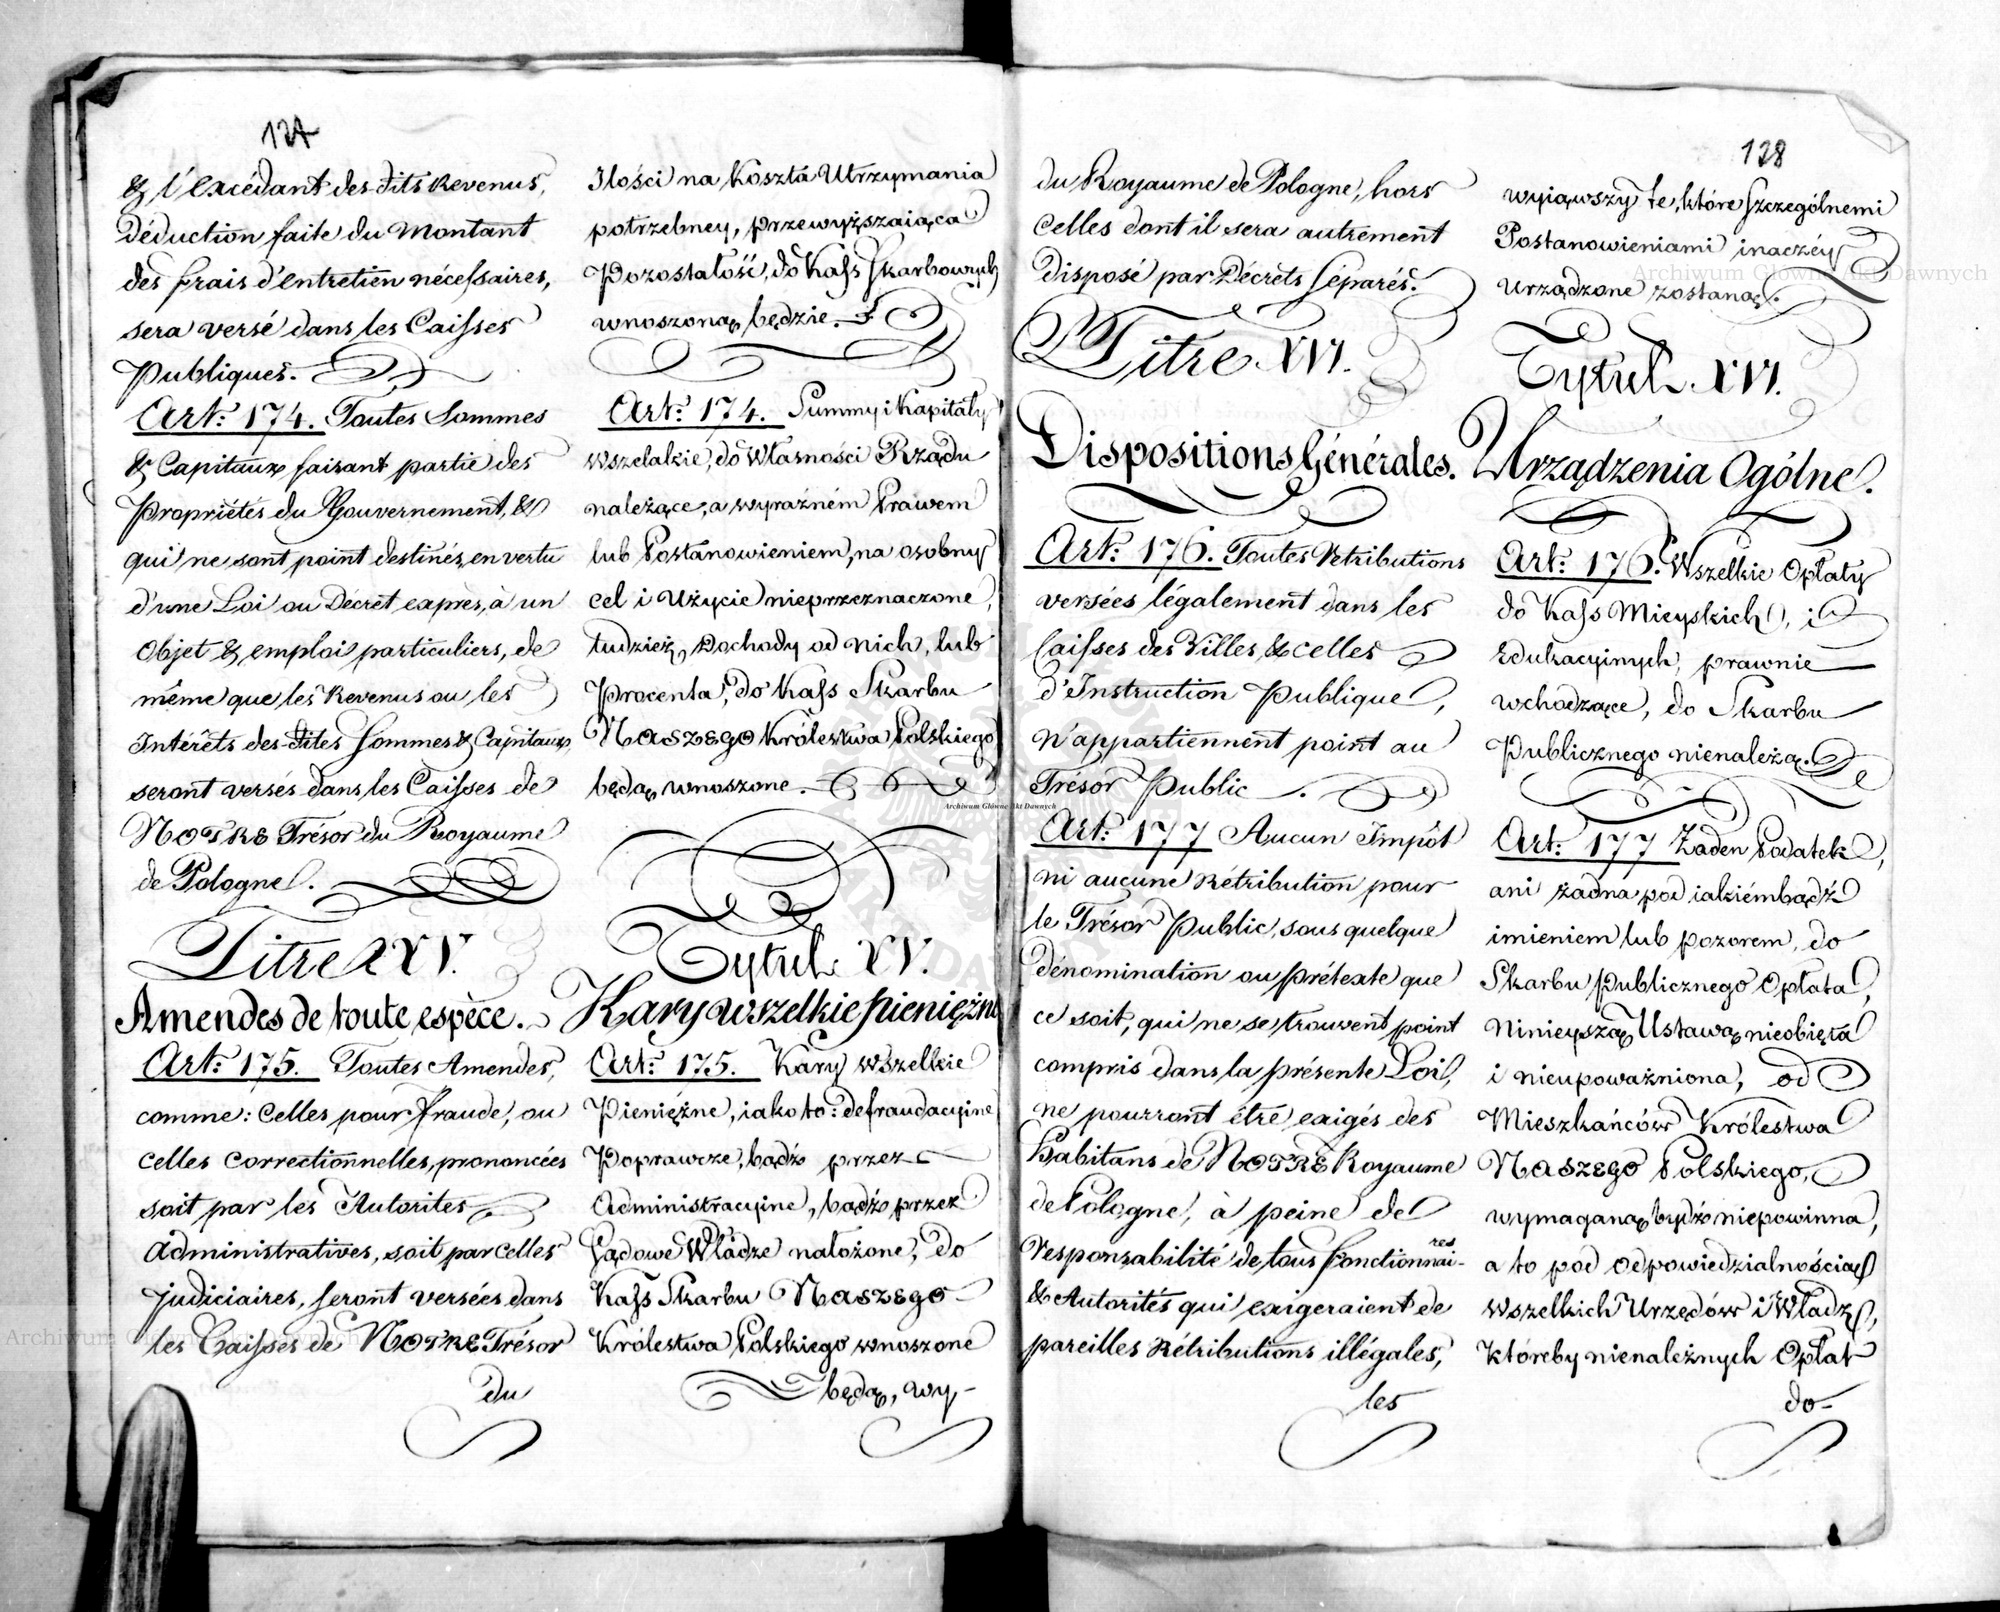 127
& l'Excédant des-dits Revenus,
Déduction faite du Montant
des frais d'entretien nécessaires,
sera versé dans les Caisses
Publiques.
Art: 174. Toutes Sommes
& Capitaux faisant partie des
Propriétés du Gouvernement, &
qui ne sont point destinés, en vertu
d'une Loi ou Décret exprès, à un
Objet & emploi particuliers, de
même que les Revenus ou les
Intérêts des-dites Sommes & Capitaux,
seront versés dans les Caisses de
NOTRE Trésor du Royaume
de Pologne.
Titre XV.
Amendes de toute espèce.
Art: 175. Toutes Amendes,
comme: Celles pour fraude, ou
celles correctionnelles, prononcées
soit par les Autorites
Administratives, soit par celles
judiciaires, seront versées dans
les Caisses de NOTRE Trésor
du
Ilości na Koszta Utrzymania
potrzebney, przewyższaiąca
Pozostałość, do Kass Skarbowych
wnoszoną będzie.
Art: 174. Summy i Kapitały
wszelakie, do Własności Rządu
należące, a wyraźném Prawem
lub Postanowieniem, na osobny
cel i Użycie nieprzeznaczone,
tudzież, Dochody od nich, lub
Procenta, do Kass Skarbu
NASZEGO Królestwa Polskiego
będą wnoszone.
Tytuł XV.
Kary wszelkie pieniężne
Art: 175. Kary wszelkie
Pieniężne, iako to: defraudacyine
Poprawcze, bądź przez
Administracyine, bądź przez
Sądowe Władze nałożone, do
Kass Skarbu NASZEGO
Królestwa Polskiego wnoszone
będą, wy-
128
du Royaume de Pologne, hors
celles dont il sera autrement
disposé par Décrets séparés.
Titre XVI.
Dispositions Générales.
Art: 176. Toutes Rétributions
versées légalement dans les
Caisses des Villes, & celles
d'Instruction Publique,
n'appartiennent point au
Trésor Public.
Art: 177 Aucun Impôt
ni aucune Rétribution pour
le Trésor Public, sous quelque
dénomination ou prétexte que
ce soit, qui ne se trouvent point
compris dans la présente Loi,
ne pourront être exigés des
Habitans de NOTRE Royaume
de Pologne, à peine de
responsabilité de tous fonctionnaires
& Autorités qui exigeraient de
pareilles Rétributions illégales,
les
wyiąwszy te, które szczególnemi
Postanowieniami inaczéy
urządzone zostaną.
Tytuł XVI.
Urządzenia Ogólne.
Art: 176. Wszelkie Opłaty
do Kass Mieyskich, i
Edukacyinych, prawnie
wchodzące, do Skarbu
Publicznego nienależą.
Art: 177 Żaden Podatek,
ani żadna pod iakiémbądź
imieniem lub pozorem, do
Skarbu Publicznego Opłata,
Ninieyszą Ustawą nieobięta
i nieupoważniona, od
Mieszkańców Królestwa
NASZEGO Polskiego,
wymaganą bydź niepowinna,
a to pod odpowiedzialnością
wszelkich Urzędów i Władz,
któreby nienależnych Opłat
do-
Archiwum Główne Akt Dawnych
Archiwum Główne Akt Dawnych
Archiwum Główne Akt Dawnych